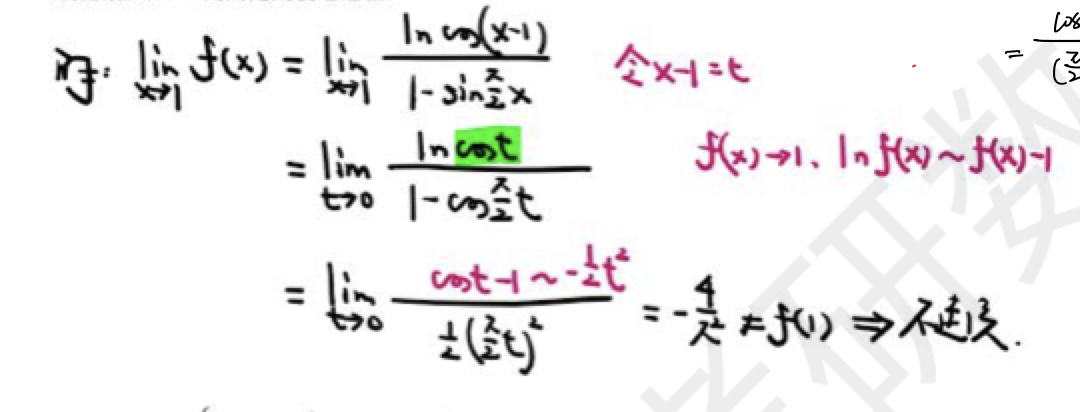 解: lim_{x→1} f(x) = lim_{x→1} \frac{ln cos(x-1)}{1-sin\frac{π}{2}x} 令x-1=t
= lim_{t→0} \frac{ln cost}{1-cos\frac{π}{2}t} f(x)→1、ln f(x)~f(x)-1
= lim_{t→0} \frac{cost-1~-\frac{1}{2}t^2}{\frac{1}{2}(\frac{π}{2}t)^2} = -\frac{4}{π^2} ≠ f(1) ⇒ 不连续.
考研数